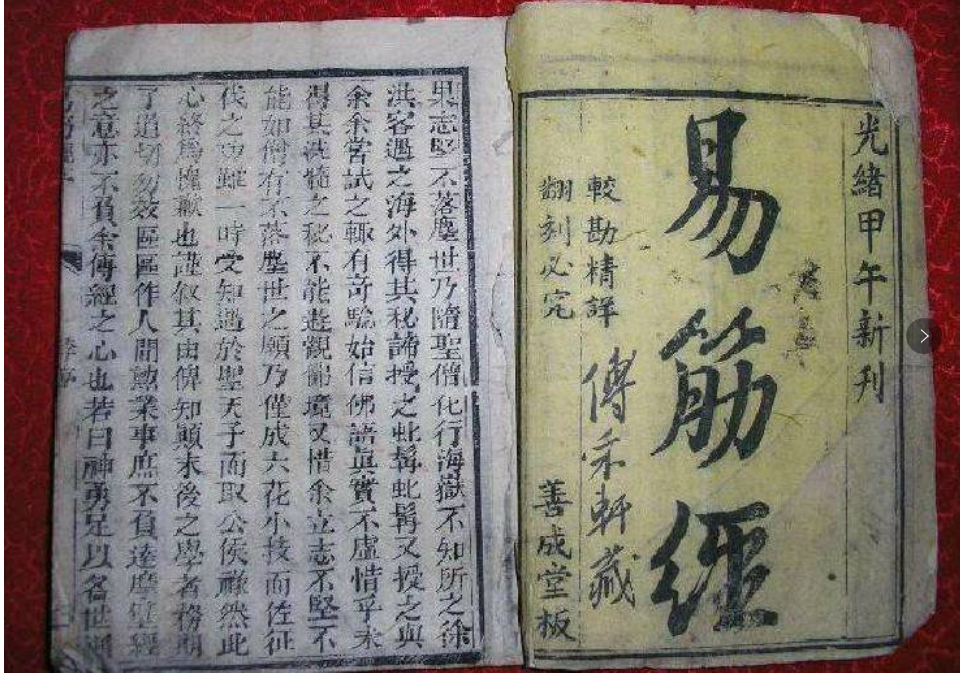 光緒甲午新刊
易筋經
較勘精詳
翻刻必究
傅禾軒藏
善成堂板
果志堅不落塵世乃隨聖僧化行海嶽不知所之徐
洪客遇之海外得其秘諦授之虬髯虬髯又授之與
余余嘗試之輒有奇驗始信佛語真實不虛惜乎未
得其洗髓之秘不能遊觀佛境又惜余立志不堅不
能如僧有不落塵世之願乃僅成六花小技而佐征
伐之功雖一時受知遇於聖天子而取公侯祿然此
心終為愧歉也謹叙其由俾知顛末後之學者務期
了道切勿效區區作人間勲業事庶不負達摩
經
之意亦不負余傳經之心也若曰神勇足以名世
李序